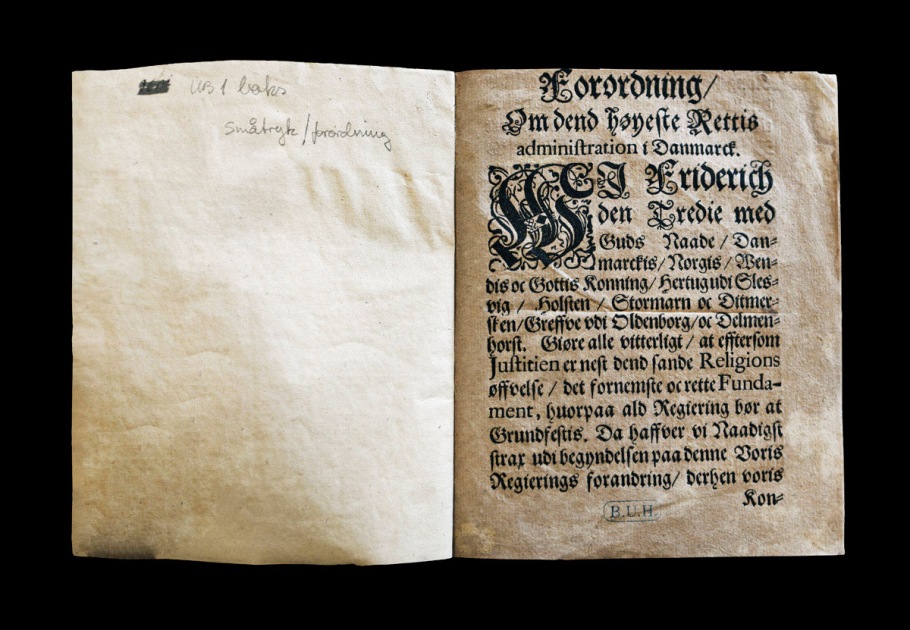 UB 1 boks
Småtryk / forordning
Forordning/
Om dend høyeste Rettis
administration i Danmarck.
WEJ Friderich
den Tredie med
Guds Naade / Dan-
marckis / Norgis / Wen-
dis oc Gottis Konning / Hertug udi Sles-
vig / Holsten / Stormarn oc Ditmer-
sken / Greffve vdi Oldenborg / oc Delmen-
horst. Giøre alle vitterligt / at efftersom
Justitien er nest dend sande Religions
øffvelse / det fornemste oc rette Funda-
ment, huorpaa ald Regiering bør at
Grundfestis. Da haffver vi Naadigst
strax udi begyndelsen paa denne Voris
Regierings forandring / derhen voris
Kon-
B.U.H.